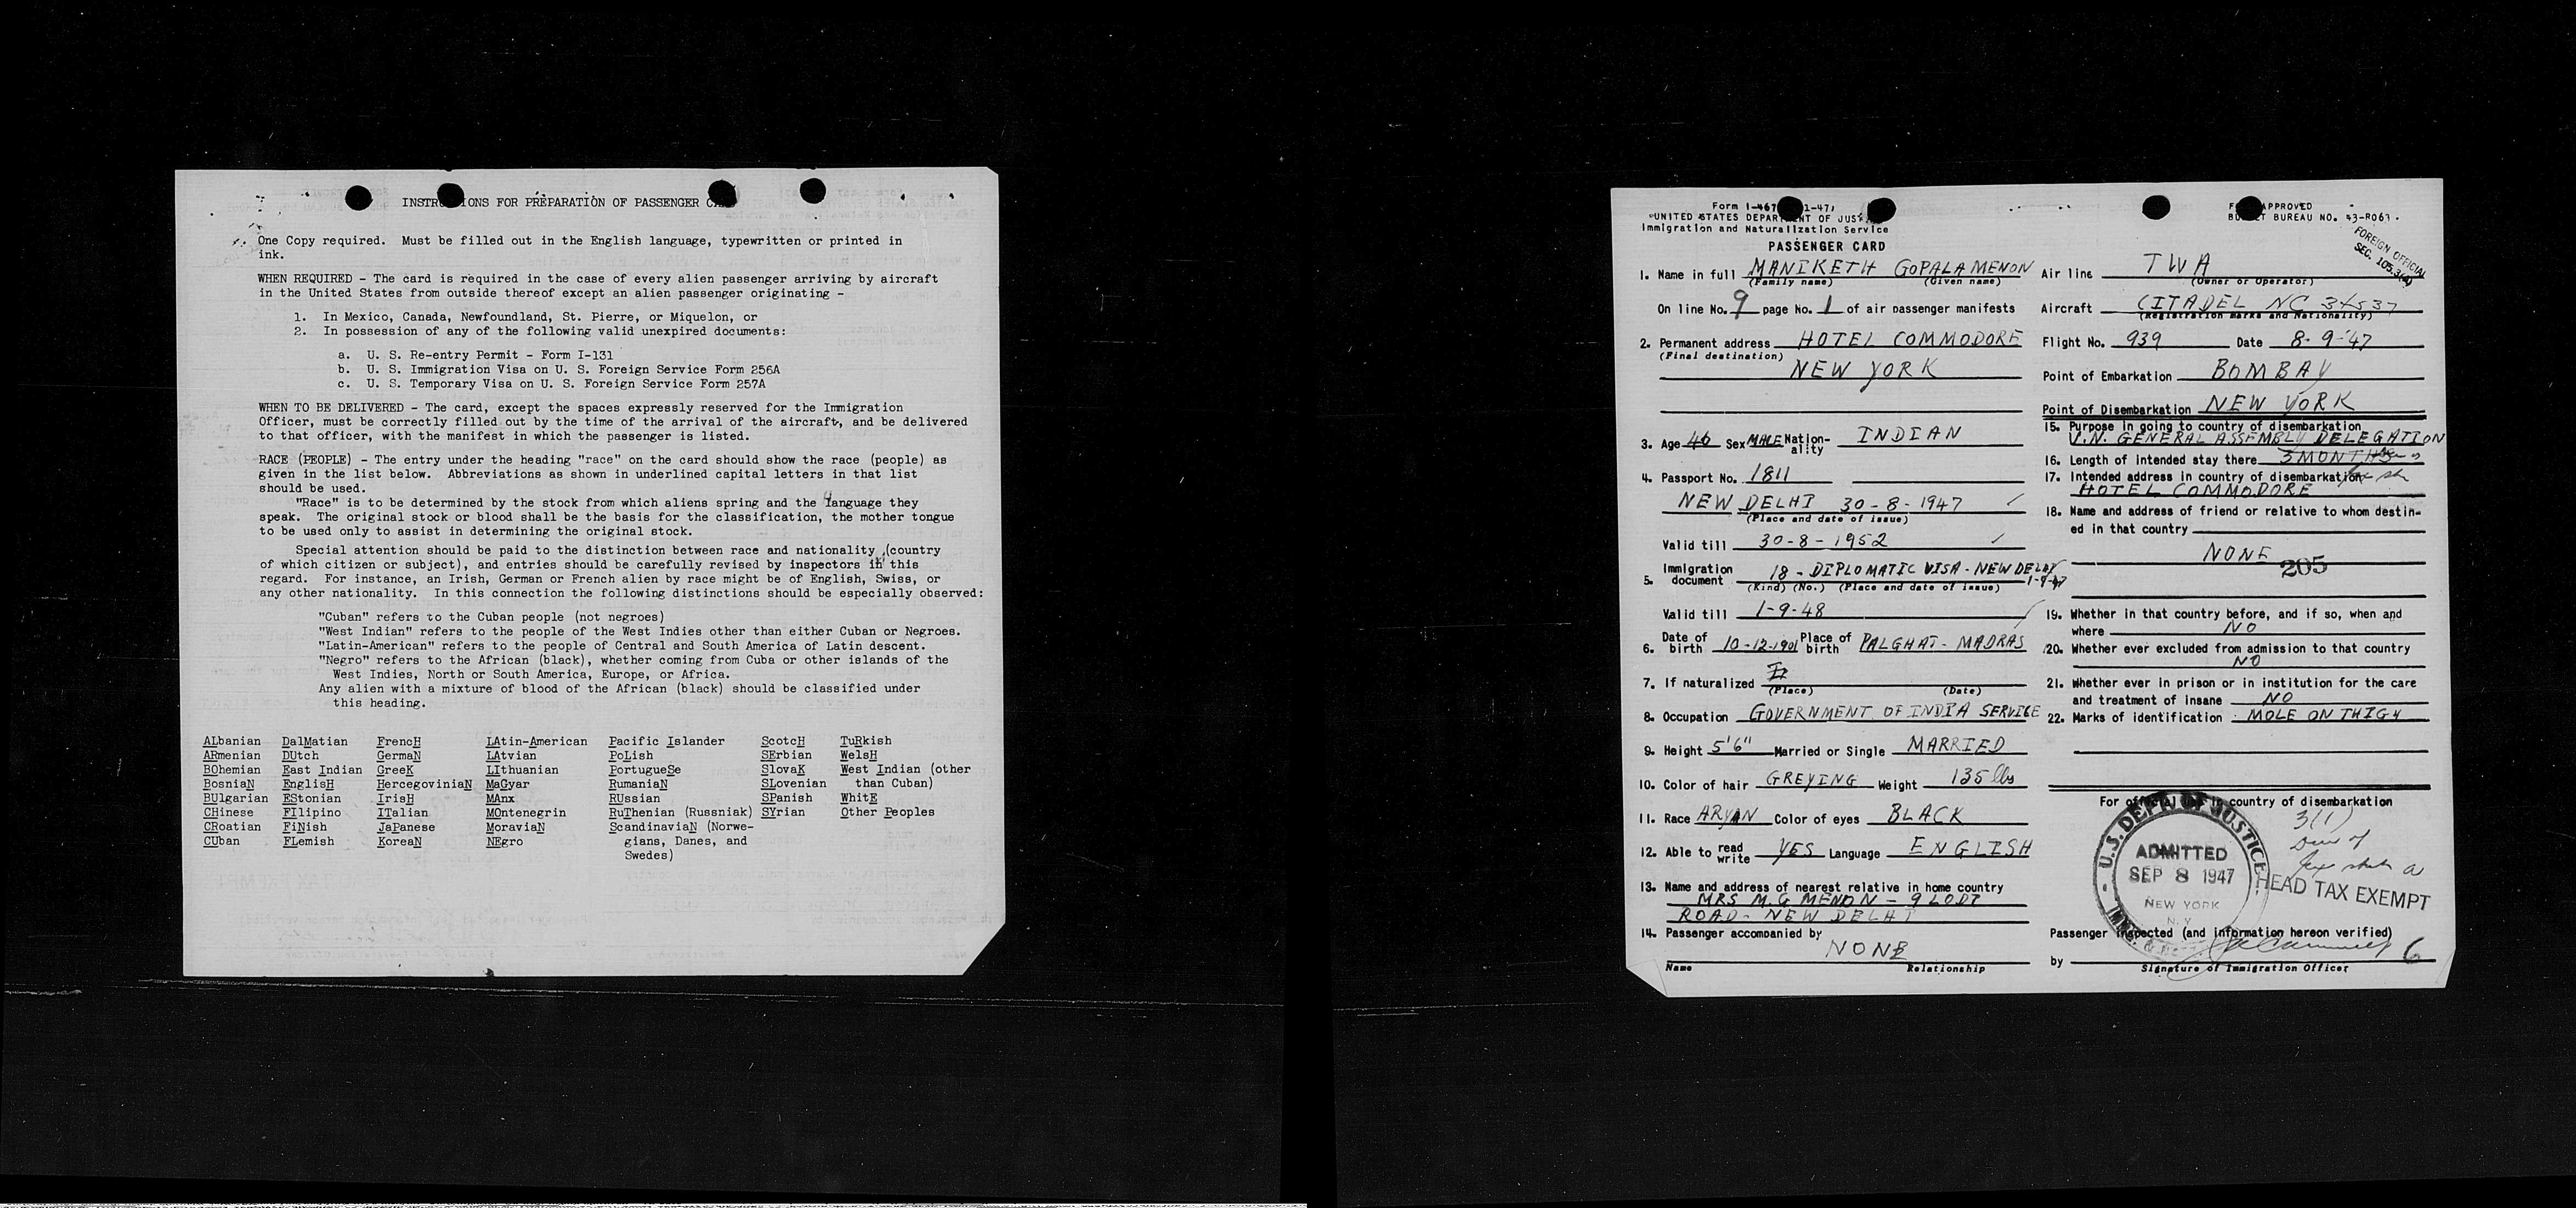 INSTRUCTIONS FOR PREPARATION OF PASSENGER
One Copy required. Must be filled out in the English language, typewritten or printed in
ink.
WHEN REQUIRED - The card is required in the case of every alien passenger arriving by aircraft
in the United States from outside thereof except an alien passenger originating -
1. In Mexico, Canada, Newfoundland, St. Pierre, or Miquelon, or
2. In possession of any of the following valid unexpired documents:
a. U. S. Re-entry Permit - Form I-131
b. U. S. Immigration Visa on U. S. Foreign Service Form 256A
c. U. S. Temporary Visa on U. S. Foreign Service Form 257A
WHEN TO BE DELIVERED - The card, except the spaces expressly reserved for the Immigration
Officer, must be correctly filled out by the time of the arrival of the aircraft, and be delivered
to that officer, with the manifest in which the passenger is listed.
RACE (PEOPLE) - The entry under the heading "race" on the card should show the race (people) as
given in the list below. Abbreviations as shown in underlined capital letters in that list
should be used.
"Race" is to be determined by the stock from which aliens spring and the language they
speak. The original stock or blood shall be the basis for the classification, the mother tongue
to be used only to assist in determining the original stock.
Special attention should be paid to the distinction between race and nationality (country
of which citizen or subject), and entries should be carefully revised by inspectors in this
regard. For instance, an Irish, German or French alien by race might be of English, Swiss, or
any other nationality. In this connection the following distinctions should be especially observed:
"Cuban" refers to the Cuban people (not negroes)
"West Indian" refers to the people of the West Indies other than either Cuban or Negroes.
"Latin-American" refers to the people of Central and South America of Latin descent.
"Negro" refers to the African (black), whether coming from Cuba or other islands of the
West Indies, North or South America, Europe, or Africa.
Any alien with a mixture of blood of the African (black) should be classified under
this heading.
ALbanian DalMatian FrencH LAtin-American Pacific Islander ScotcH TuRkish
ARmenian DUtch GermaN LAtvian PoLish SErbian WelsH
BOhemian East Indian GreeK LIthuanian PortugueSe SlovaK West Indian (other
BosniaN EnglisH HercegoviniaN MaGyar RumaniaN SLovenian than Cuban)
BUlgarian EStonian IrisH MAnx RUssian SPanish WhitE
CHinese FIlipino ITalian MOntenegrin RuThenian (Russniak) SYrian Other Peoples
CRoatian FiNish JaPanese MoraviaN ScandinaviaN (Norwe-
CUban FLemish KoreaN NEgro gians, Danes, and
Swedes)
Form I-467
UNITED STATES DEPARTMENT OF JUSTICE
Immigration and Naturalization Service
PASSENGER CARD
1. Name in full MANIKETH GOPALA MENON
(Family name) (Given name)
On line No. 9 page No. 1 of air passenger manifests
2. Permanent address HOTEL COMMODORE
(Final destination)
NEW YORK
3. Age 46 Sex MALE Nation-ality INDIAN
4. Passport No. 1811
NEW DELHI 30-8-1947
(Place and date of issue)
Valid till 30-8-1952
5. Immigration document 18 - DIPLOMATIC VISA - NEW DELHI 1-9-47
(Kind) (No.) (Place and date of issue)
Valid till 1-9-48
6. Date of birth 10-12-1901 Place of birth PALGHAT - MADRAS
7. If naturalized
(Place) (Date)
8. Occupation GOVERNMENT OF INDIA SERVICE
9. Height 5'6" Married or Single MARRIED
10. Color of hair GREYING Weight 135 lbs
11. Race ARYAN Color of eyes BLACK
12. Able to read write YES Language ENGLISH
13. Name and address of nearest relative in home country
MRS M.G MENON - 9 LODI
ROAD - NEW DELHI
14. Passenger accompanied by
NONE
Name Relationship
APPROVED
BUDGET BUREAU NO. 43-R063.
FOREIGN OFFICIAL
SEC. 105.3(a)
Air line TWA
(Owner or Operator)
Aircraft CITADEL NC 34537
(Registration marks and Nationality)
Flight No. 939 Date 8-9-'47
Point of Embarkation BOMBAY
Point of Disembarkation NEW YORK
15. Purpose in going to country of disembarkation
U.N. GENERAL ASSEMBLY DELEGATION
16. Length of intended stay there 3 MONTHS
17. Intended address in country of disembarkation
HOTEL COMMODORE
18. Name and address of friend or relative to whom destin-
ed in that country
NONE
205
19. Whether in that country before, and if so, when and
where NO
20. Whether ever excluded from admission to that country
NO
21. Whether ever in prison or in institution for the care
and treatment of insane NO
22. Marks of identification MOLE ON THIGH
For official use in country of disembarkation
3(1)
U.S. DEPT. OF JUSTICE
ADMITTED
SEP 8 1947
NEW YORK
N.Y.
IMM.
HEAD TAX EXEMPT
Passenger inspected (and information hereon verified)
by 6
Signature of Immigration Officer